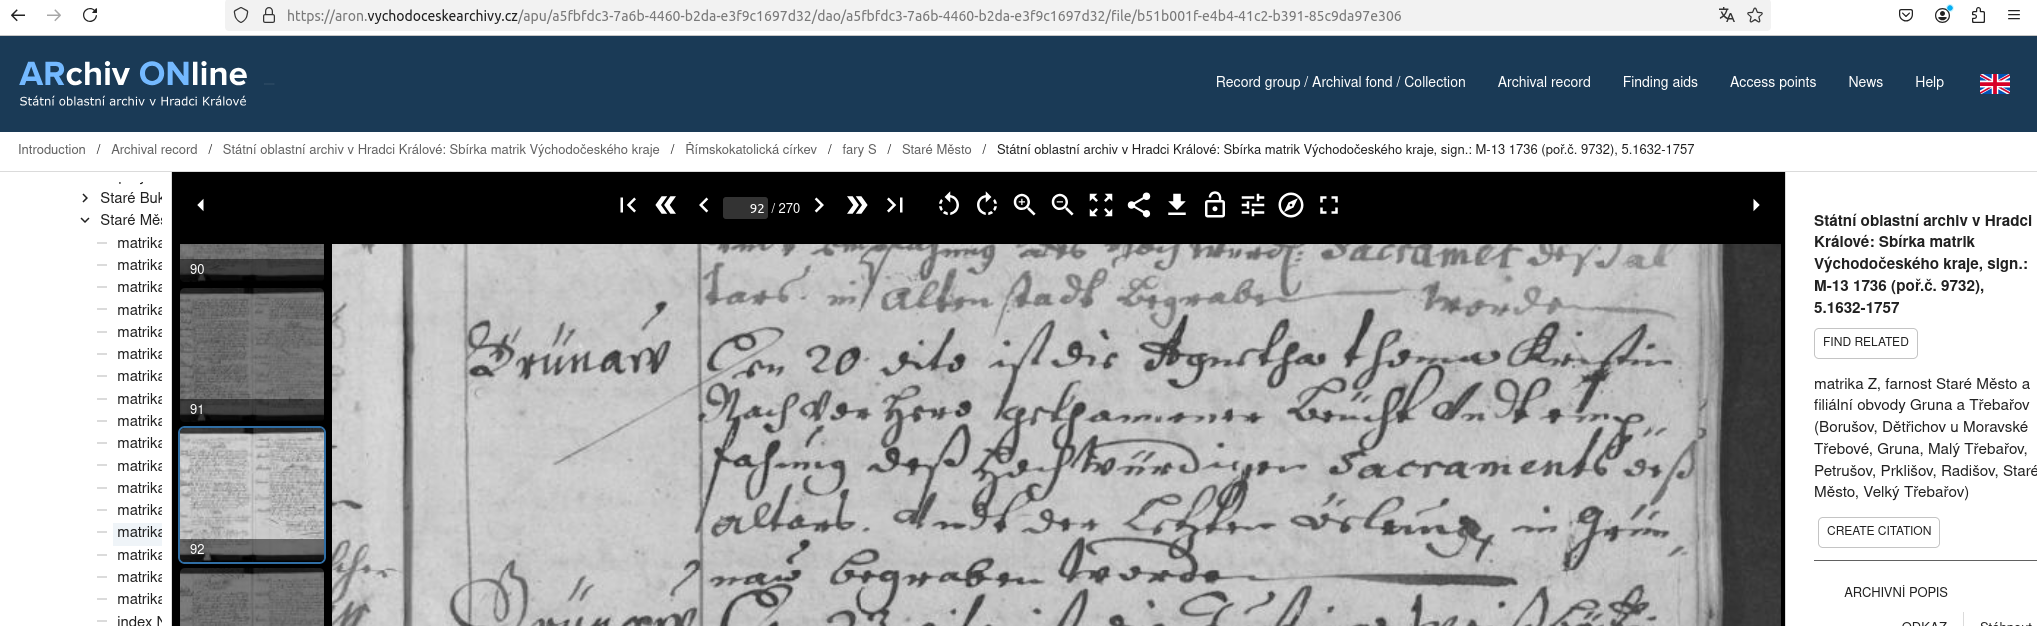 https://aron.vychodoceskearchivy.cz/apu/a5fbfdc3-7a6b-4460-b2da-e3f9c1697d32/dao/a5fbfdc3-7a6b-4460-b2da-e3f9c1697d32/file/b51b001f-e4b4-41c2-b391-85c9da97e306
ARchiv ONline
Státní oblastní archiv v Hradci Králové
Record group / Archival fond / Collection Archival record Finding aids Access points News Help
Introduction / Archival record / Státní oblastní archiv v Hradci Králové: Sbírka matrik Východočeského kraje / Římskokatolická církev / fary S / Staré Město / Státní oblastní archiv v Hradci Králové: Sbírka matrik Východočeského kraje, sign.: M-13 1736 (poř.č. 9732), 5.1632-1757
Staré Buk
Staré Měs
matrika
matrika
matrika
matrika
matrika
matrika
matrika
matrika
matrika
matrika
matrika
matrika
matrika
matrika
matrika
matrika
matrika
index N
92 / 270
90
91
92
Sacrament deß al
tars. in Altenstadt begraben worden
Grünaw Den 20 dito ist die Agnetha Thoma Kirstin
Nach Vor hero gethanener Beücht Undt emp
fahung deß Hochwürdigen Sacraments deß
altars. Undt der Letzten ölung, in Grün
naw begraben worden
Grünaw Den 23 dito ist die
Státní oblastní archiv v Hradci
Králové: Sbírka matrik
Východočeského kraje, sign.:
M-13 1736 (poř.č. 9732),
5.1632-1757
FIND RELATED
matrika Z, farnost Staré Město a
filiální obvody Gruna a Třebařov
(Borušov, Dětřichov u Moravské
Třebové, Gruna, Malý Třebařov,
Petrušov, Prklišov, Radišov, Staré
Město, Velký Třebařov)
CREATE CITATION
ARCHIVNÍ POPIS
ODKAZ Stáhnout